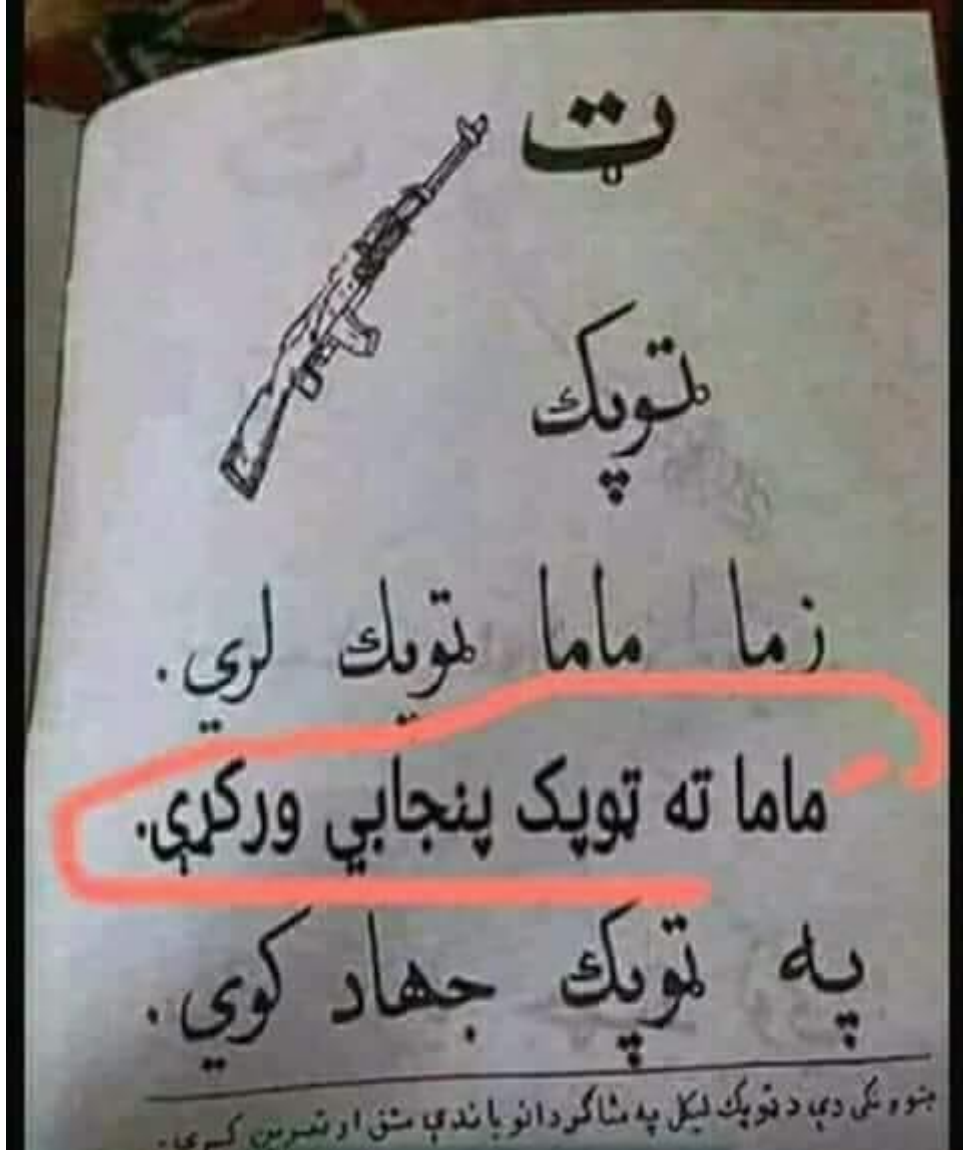 ټ
ټوپك
زما ماما ټوپك لري.
ماما ته ټوپک پنجابي ورکړې.
په ټوپك جهاد كوي.
ښوونكی دې د ټوپك ليكل په شاگردانو باندې مشق او تمرين كړي.